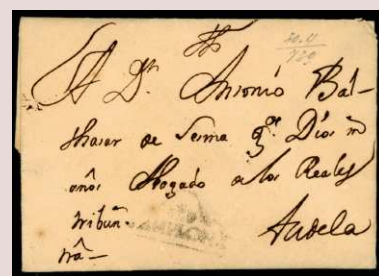 A Dn. Antonio Bal-
thasar de Sesma ge. Dios m
años Abogado de los Reales
tribun.
Tudela